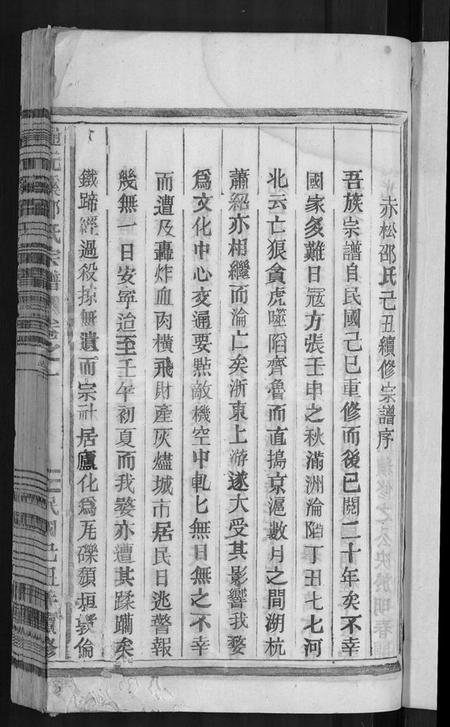 赤松邵氏己丑續修宗譜序
吾族宗譜自民國己巳重修而後已閱二十年矣不幸
國家多難日寇方張壬申之秋滿洲淪陷丁丑七七河
北云亡狼貪虎噬陷齊魯而直搗京滬數月之間湖杭
蕭紹亦相繼而淪亡矣浙東上游遂大受其影響我婺
爲文化中心交通要點敵機空中軋匕無日無之不幸
而遭及轟炸血肉橫飛財產灰燼城市居民日逃警報
幾無一日安寧迨至壬午初夏而我婺亦遭其蹂躪矣
鐵蹄經過殺掠無遺而宗社居廬化爲瓦礫頹垣彝倫
邵氏宗譜
民國己丑年續修